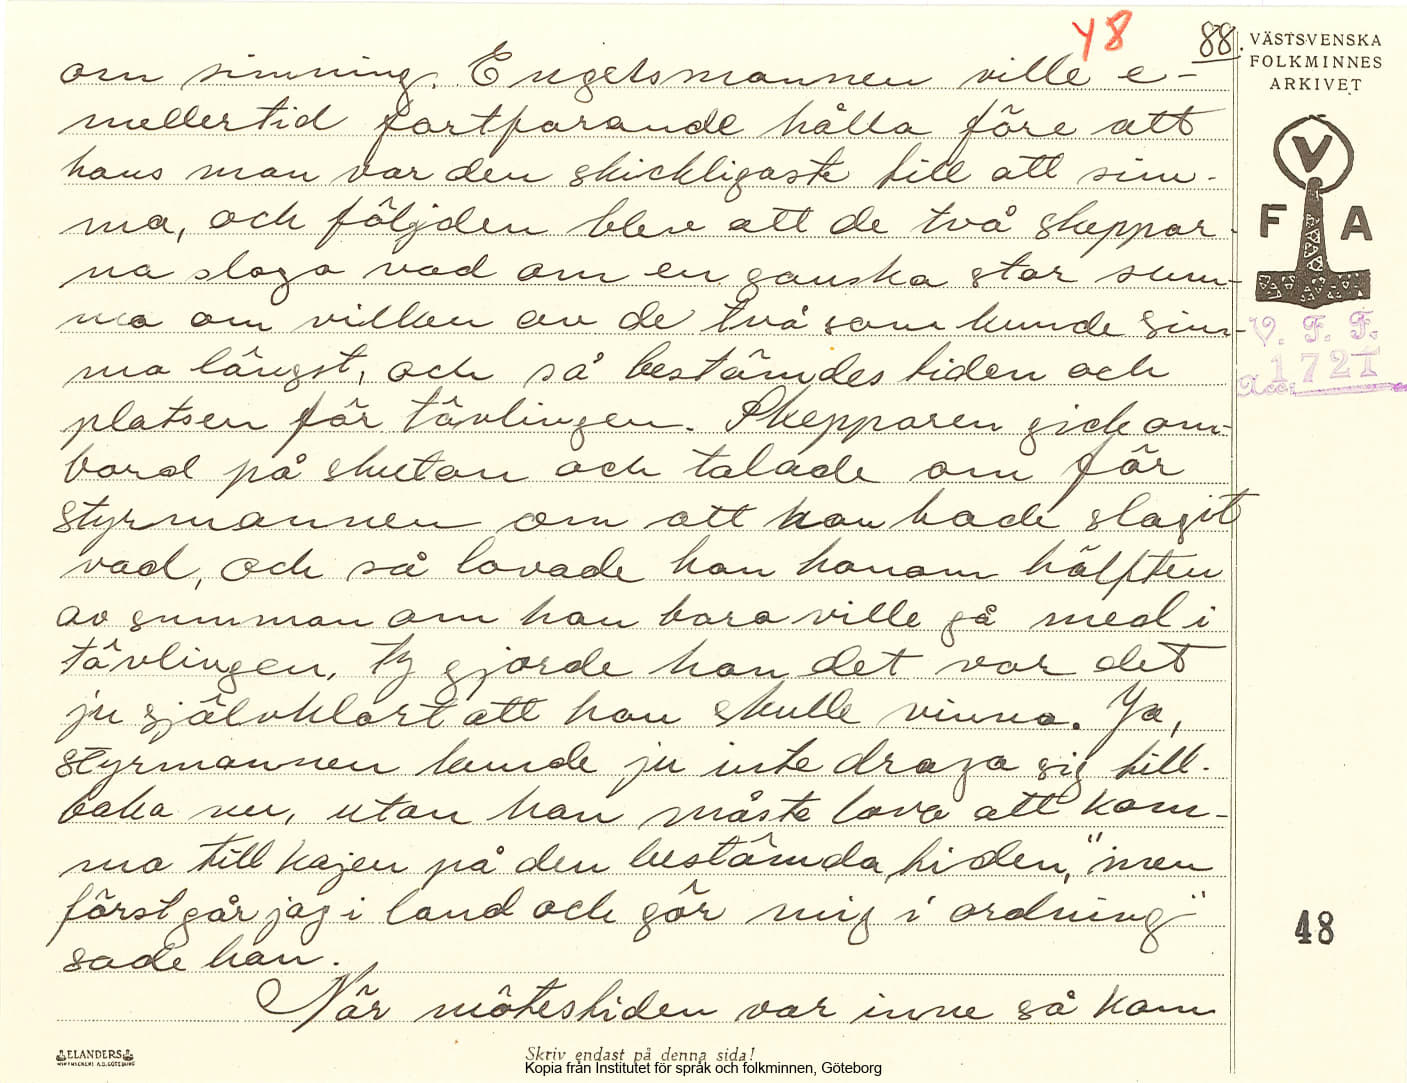 48
88.
VÄSTSVENSKA
FOLKMINNES
ARKIVET
V
F A
V. F. F.
Acc. 1721
om simning. Engelsmannen ville e-
mellertid fortfarande hålla före att
hans man var den skickligaste till att sim-
ma, och följden blev att de två skeppar-
na slogo vad om en ganska stor sum-
ma om vilken av de två som kunde sim-
ma längst, och så bestämdes tiden och
platsen för tävlingen. Skepparen gick om-
bord på skutan och talade om för
styrmannen om att han hade slagit
vad, och så lovade han honom hälften
av summan om han bara ville gå med i
tävlingen, ty gjorde han det var det
ju självklart att han skulle vinna. Ja,
styrmannen kunde ju inte draga sig till-
baka nu, utan han måste lova att kom-
ma till kajen på den bestämda tiden, "men
först går jag i land och gör mig i ordning"
sade han.
När mötestiden var inne så kom
48
ELANDERS
Skriv endast på denna sida!
Kopia från Institutet för språk och folkminnen, Göteborg